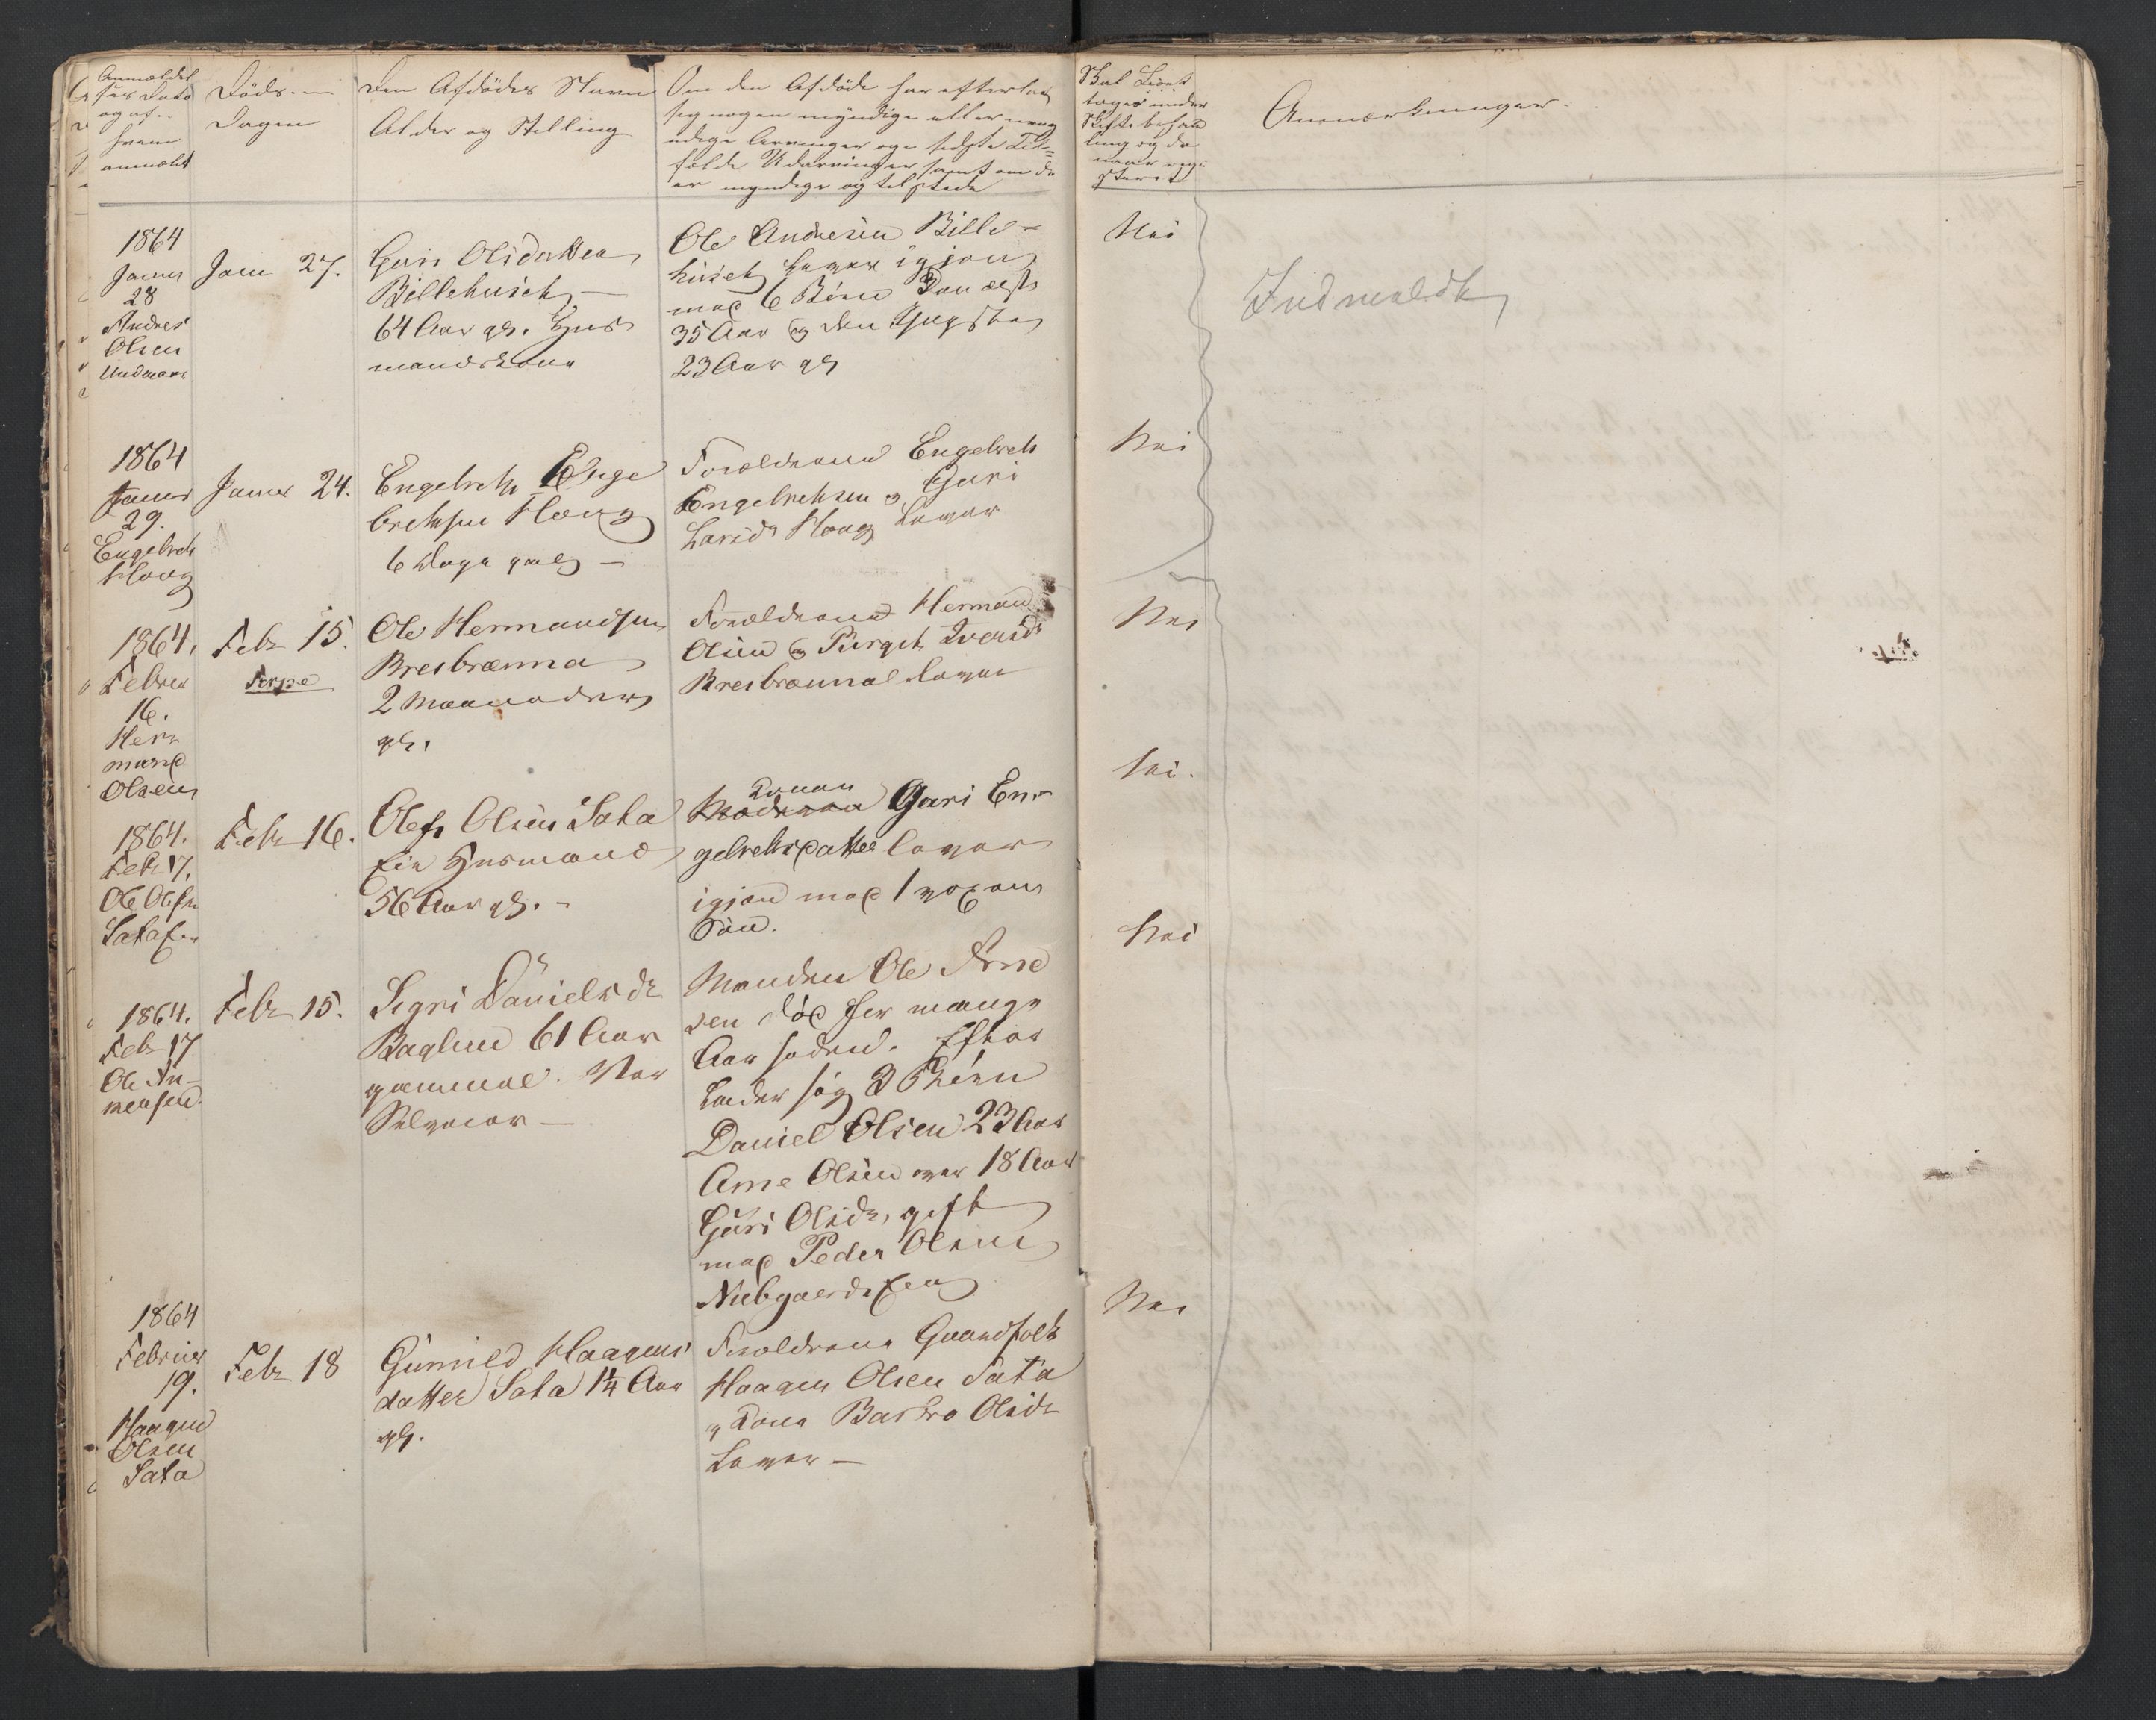 Anmeldel
ses Dato
og af
hvem
anmeldt
Døds-
Dagen
Den Afdødes Navn
Alder og Stilling
Om den Afdøde har efterladt
sig nogen myndige eller umyn
dige Arvinger og i sidste Til=
fælde Udarvinger samt om de
er myndige og tilstede
Skal Boet
tages under
Skiftebehand
ling og da
naar regi
streret
Anmærkninger
1864
Januar
28
Andres
Olsen
Janu 27.
Guri Olsdatter
Billehuset
64 Aar gl. Hus
mandskone
Ole Andresen Bille-
huset Lever igjen
med 6 Børn Den ælste
35 Aar og den Yngste
23 Aar gl
Nei
Indmeldt
1864
Januar
29.
Engebret
Houg
Januar 24.
Engebreht Enge
brehtsen Houg
6 Dage gam
Forældrene Engebreht
Engebrehtsen og Guri
Larsdr Houg Lever
Nei
1864,
Februar
16.
Her
mand
Olsen
Febr 15.
Terpe
Ole Hermandsen
Breibrænna
2 Maaneder
gl.
Forældrene Herman
Olsen og Birget Iversdr
Breibrænna lever
Nei
1864.
Feb 17.
Ole Olsen
Sataeie
Febr 16.
Ole Olsen Sata
Eie Husmand
56 Aar gl. -
Konen
Moderen Guri En
gebrehtsdatter lever
igjen med 1 voxen
Søn.
Nei.
1864.
Feb 17
Ole An-
nensen.
Febr 15.
Sigri Danielsdr
Baglun 61 Aar
gammel. Var
Selveier -
Manden Ole Arne
sen død for mange
Aar siden. Efter
Lader sig 3 Børn
Daniel Olsen 23 Aar
Arne Olsen over 18 Aar
Guri Olsdr, gift
med Peder Olsen
Nubgaardseie
Nei
1864
Februar
19.
Haagen
Olsen
Sata
Febr 18
Gunild Haagens
datter Sata 1¼ Aar
gl.
Forældrene Gaardfolk
Haagen Olsen Sata
og Kone Barbro Olsdr
Lever -
Nei